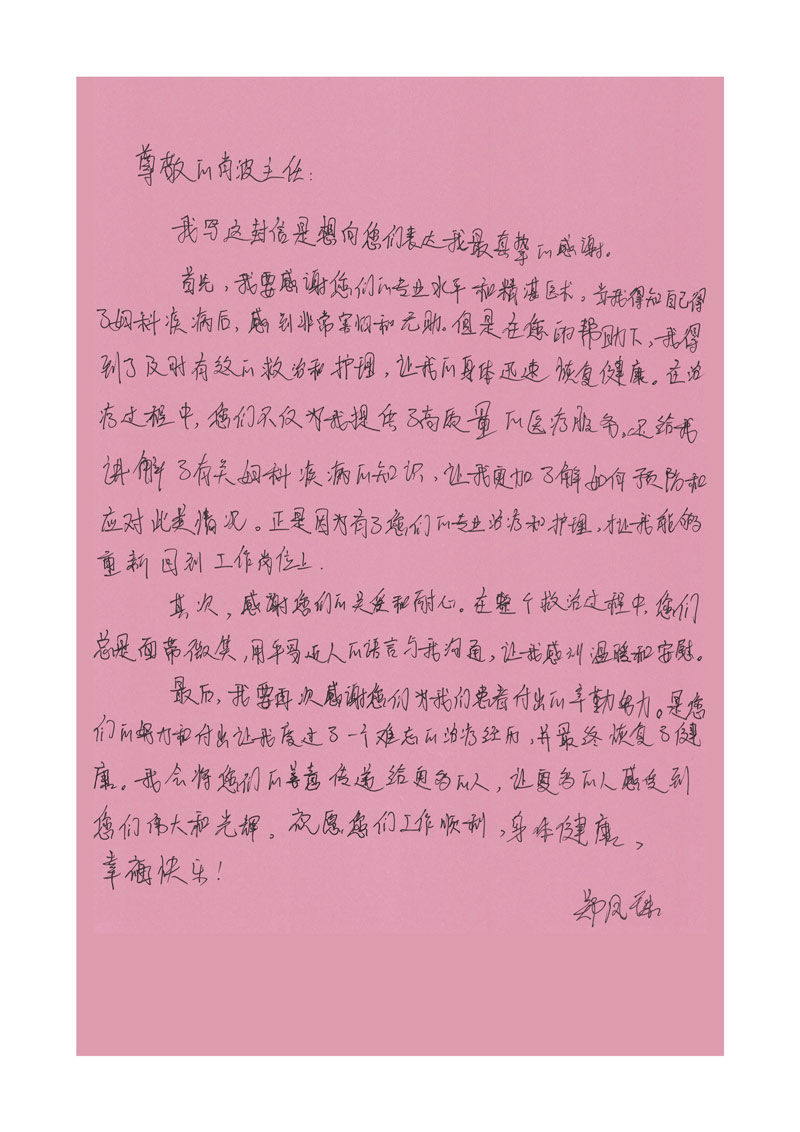 尊敬的肖波主任:
我写这封信是想向您们表达我最真挚的感谢。
首先,我要感谢您们的专业水平和精湛医术,当我得知自己得
了妇科疾病后,感到非常害怕和无助。但是在您的帮助下,我得
到了及时有效的救治和护理,让我的身体迅速恢复健康。在治
疗过程中,您们不仅为我提供了高质量的医疗服务,还给我
讲解了有关妇科疾病的知识,让我更加了解如何预防和
应对此类情况。正是因为有了您们的专业治疗和护理,才让我能够
重新回到工作岗位上.
其次,感谢您们的关爱和耐心。在整个救治过程中,您们
总是面带微笑,用平易近人的语言与我沟通,让我感到温暖和安慰。
最后,我要再次感谢您们为我们患者付出的辛勤努力。是您
们的努力和付出让我度过了一个难忘的治疗经历,并最终恢复了健
康。我会将您们的善意传递给更多的人,让更多的人感受到
您们伟大和光辉。祝愿您们工作顺利,身体健康、
幸福快乐!
郑凤